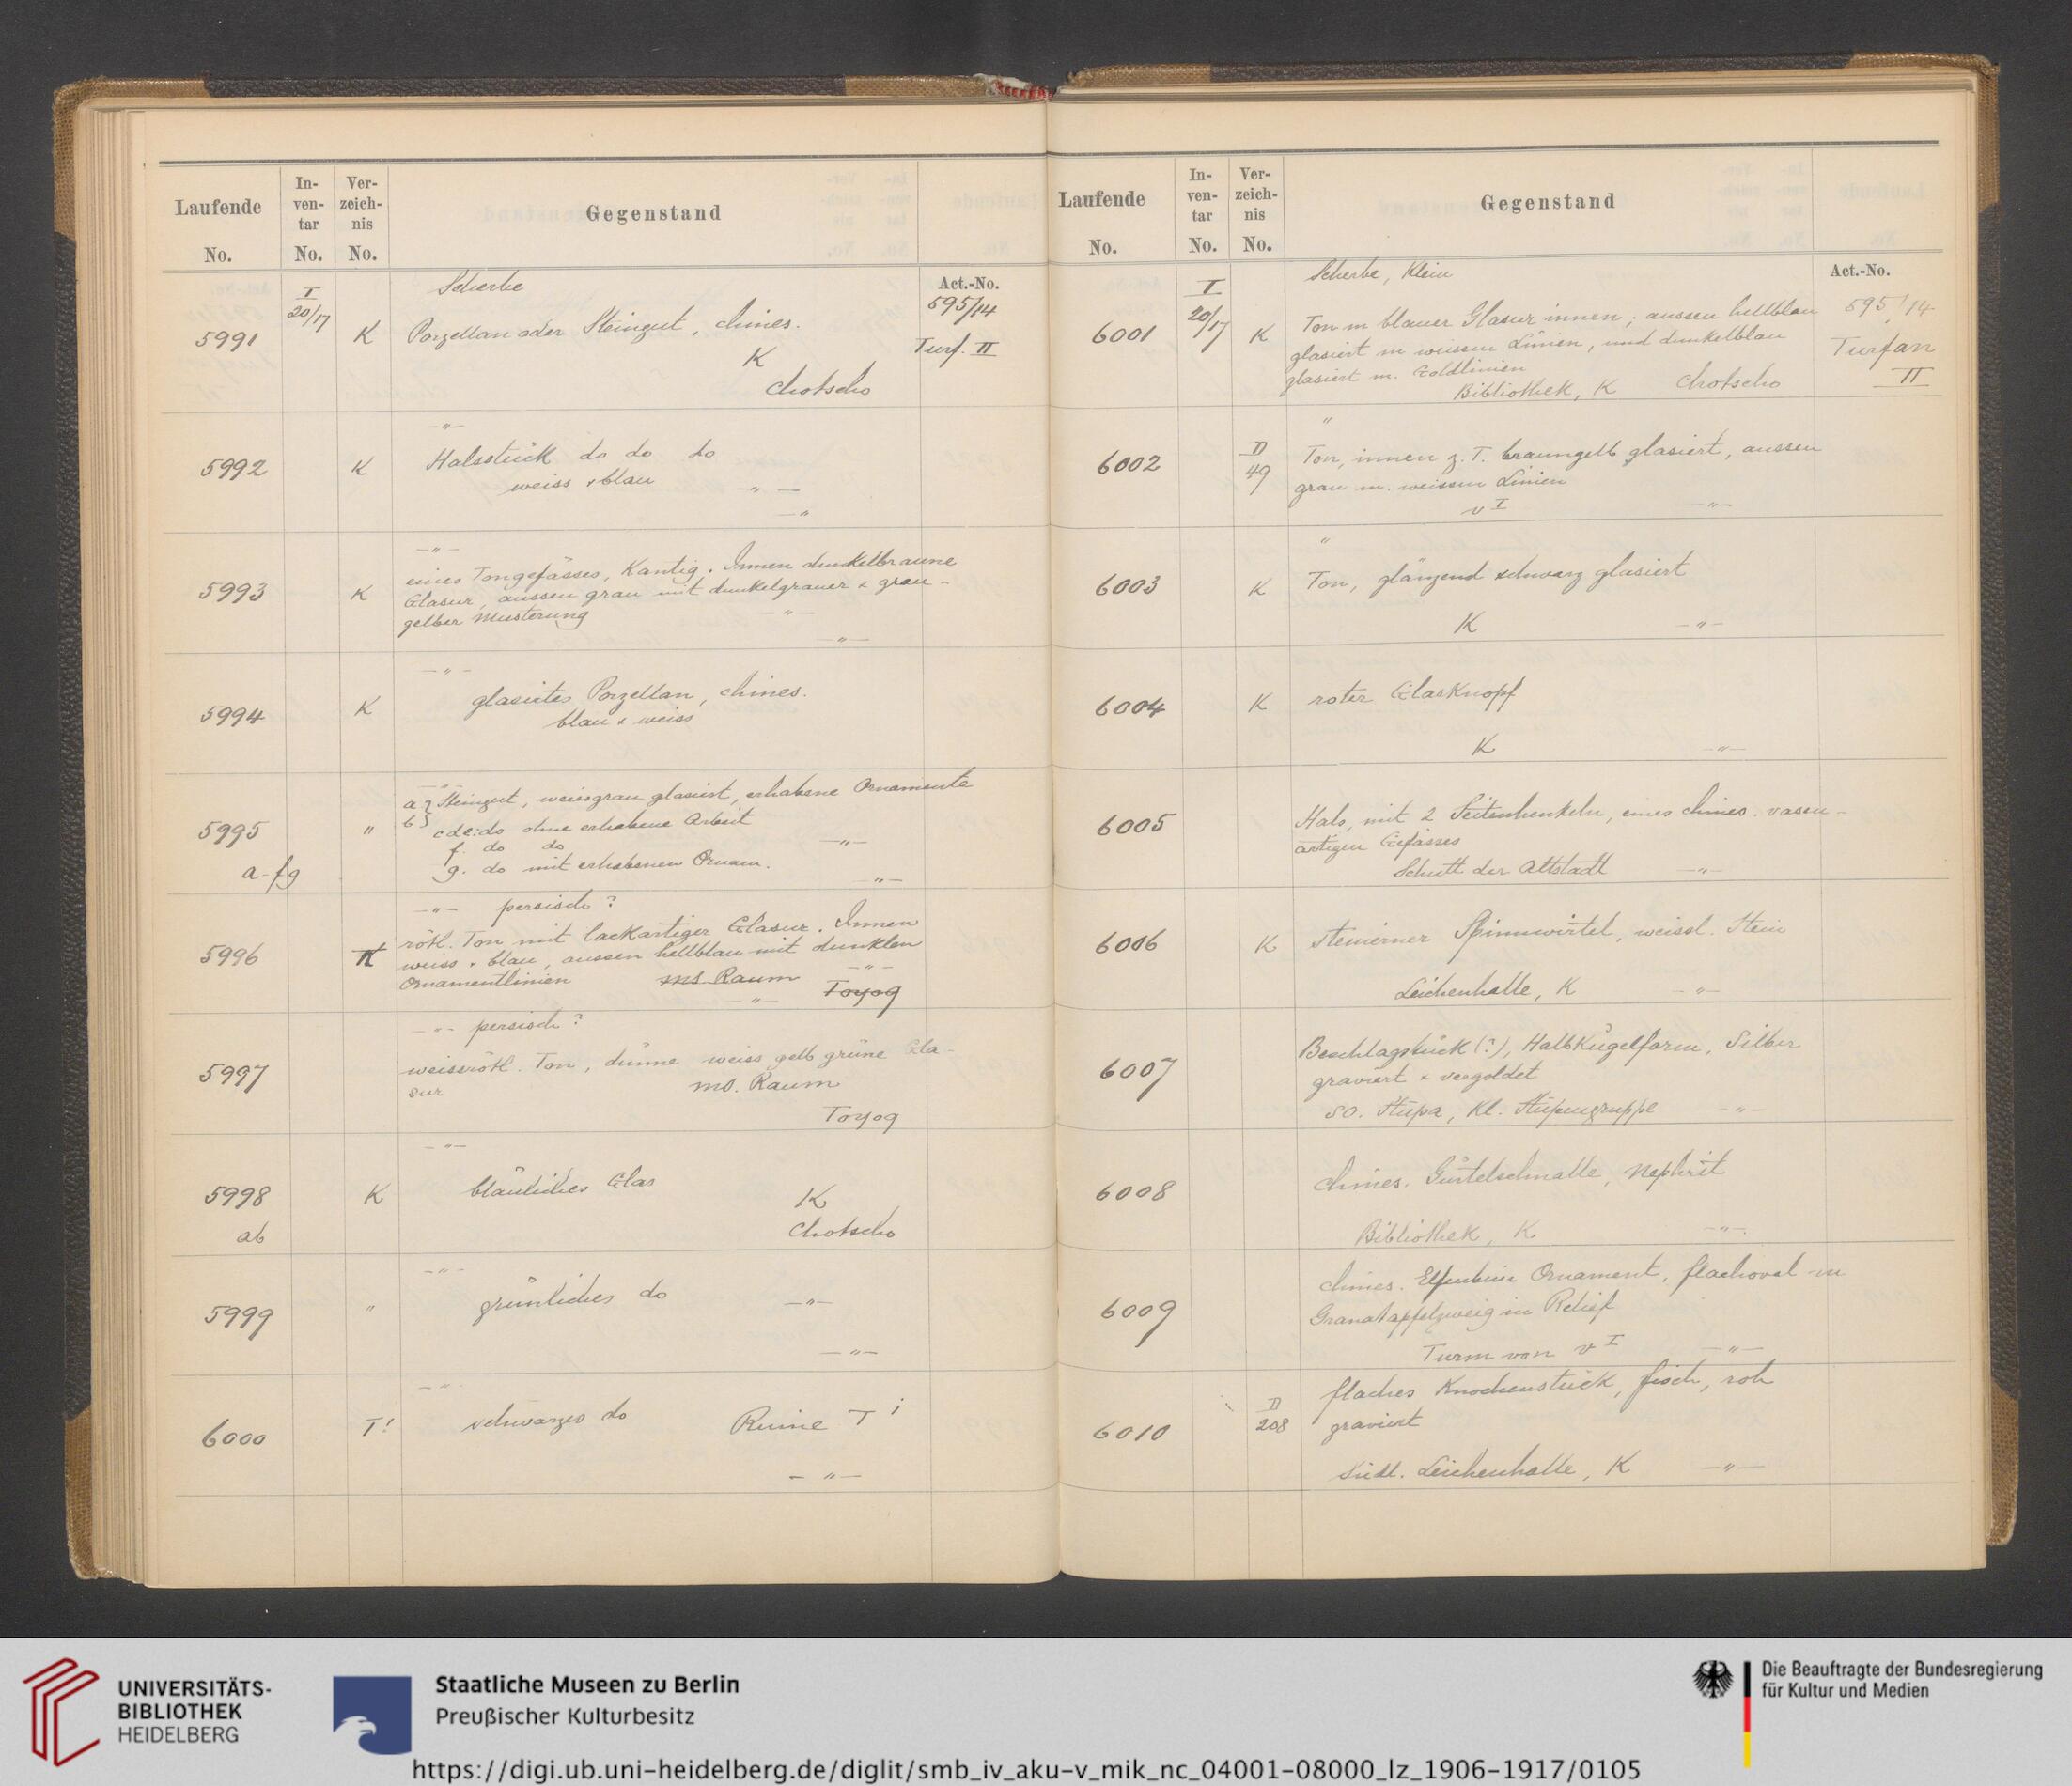 Laufende No.
In-ven-tar No.
Ver-zeich-nis No.
Gegenstand
Act.-No.
595/14
Turf. II
I
20/17
5991
K
Scherbe
Porzellan oder Steingut, chines.
K
Chotscho
5992
K
—"—
Halsstück do do do
weiss + blau —"—
—"
5993
K
—"—
eines Tongefässes, Kantig. Innen dunkelbraune
Glasur, aussen grau mit dunkelgrauer + grau-
gelber Musterung —"—
—"—
5994
K
—"—
glasiertes Porzellan, chines.
blau + weiss
5995
a-fg
"
—"—
a } Steingut, weissgrau glasiert, erhabene Ornamente
b }
cde: do ohne erhabene Arbeit
f. do do —"—
g. do mit erhabenem Ornam.
—"—
5996
K
—"— persisch?
rötl. Ton mit lackartiger Glasur. Innen
weiss + blau, aussen hellblau mit dunklen
Ornamentlinien ms Raum —"—
—"— Toyog
5997
—"— persisch?
weissrötl. Ton, dünne weiss gelb grüne Gla-
sur ms. Raum
Toyog
5998
ab
K
—"—
bläuliches Glas
K
Chotscho
5999
"
—"—
grünliches do —"—
—"—
6000
T'
—"
schwarzes do Ruine T i
—"—
Laufende No.
In-ven-tar No.
Ver-zeich-nis No.
Gegenstand
Act.-No.
595/14
Turfan
II
I
20/17
6001
K
Scherbe, Klein
Ton m blauer Glasur innen; aussen hellblau
glasiert m weissen Linien, und dunkelblau
glasiert m. Goldlinien
Bibliothek, K Chotscho
6002
D
49
"
Ton, innen z. T. braungelb glasiert, aussen
grau m. weissen Linien
v I —"—
6003
K
"
Ton, glänzend schwarz glasiert
K —"—
6004
K
roter Glasknopf
K —"—
6005
Hals, mit 2 Seitenhenkeln, eines chines. vasen-
artigen Gefässes
Schutt der Altstadt —"—
6006
K
steinerner Spinnwirtel, weissl. Stein
Leichenhalle, K —"—
6007
Beschlagstück (?), Halbkugelform, Silber
graviert + vergoldet
SO. Stupa, Kl. Stupengruppe —"—
6008
chines. Gürtelschnalle, Nephrit
Bibliothek, K —"—
6009
chines. Elfenbein Ornament, flachoval m
Granatapfelzweig in Relief
Turm von v I —"—
6010
D
208
flaches Knochenstück, Fisch, roh
graviert
Südl. Leichenhalle, K —"—
UNIVERSITÄTS-
BIBLIOTHEK
HEIDELBERG
Staatliche Museen zu Berlin
Preußischer Kulturbesitz
Die Beauftragte der Bundesregierung
für Kultur und Medien
https://digi.ub.uni-heidelberg.de/diglit/smb_iv_aku-v_mik_nc_04001-08000_lz_1906-1917/0105